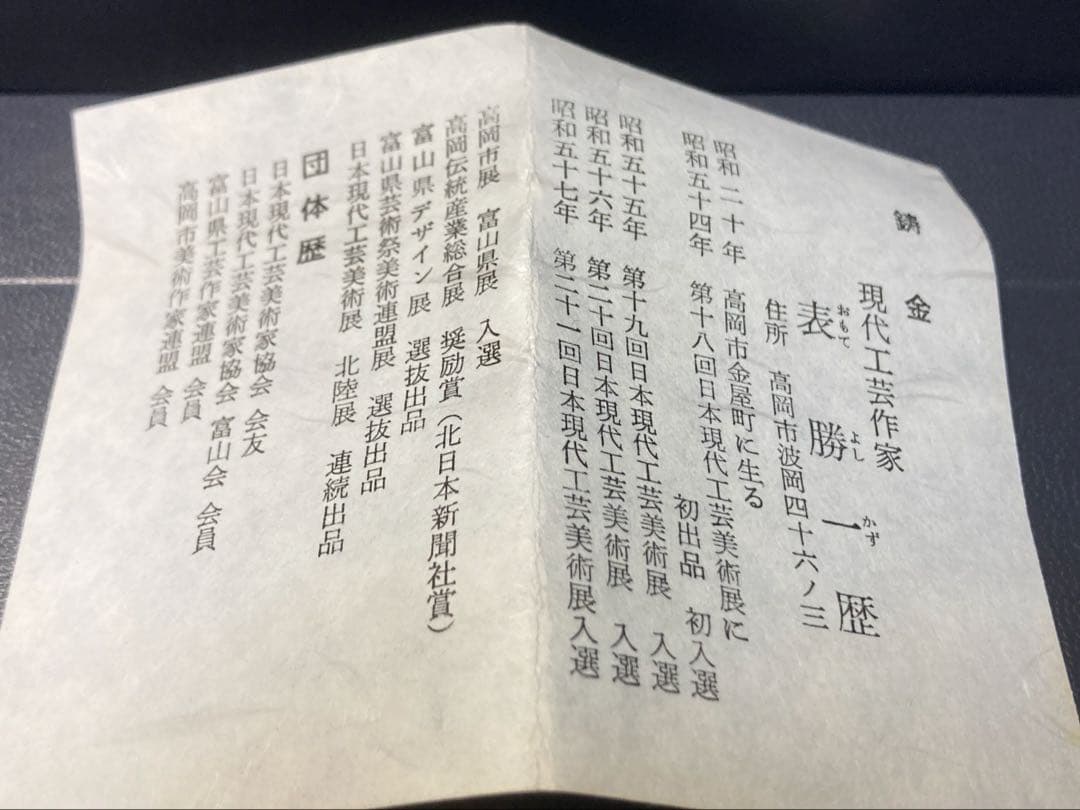 鋳金
現代工芸作家
表勝一歴
おもて よし かず
住所 高岡市波岡四十六ノ三
昭和二十年 高岡市金屋町に生る
昭和五十四年 第十八回日本現代工芸美術展に
初出品 初入選
昭和五十五年 第十九回日本現代工芸美術展 入選
昭和五十六年 第二十回日本現代工芸美術展 入選
昭和五十七年 第二十一回日本現代工芸美術展 入選
高岡市展 富山県展 入選
高岡伝統産業総合展 奨励賞(北日本新聞社賞)
富山県デザイン展 選抜出品
富山県芸術祭美術連盟展 選抜出品
日本現代工芸美術展 北陸展 連続出品
団体歴
日本現代工芸美術家協会 会友
日本現代工芸美術家協会 富山会 会員
富山県工芸作家連盟 会員
高岡市美術作家連盟 会員